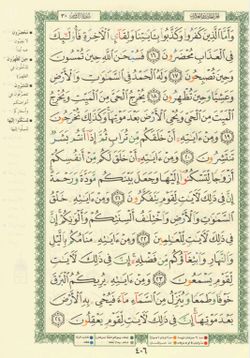 سُورَةُ الرُّومِ ٣٠
وَأَمَّا ٱلَّذِينَ كَفَرُوا۟ وَكَذَّبُوا۟ بِـَٔايَٰتِنَا وَلِقَآئِ ٱلْـَٔاخِرَةِ فَأُو۟لَٰٓئِكَ
فِى ٱلْعَذَابِ مُحْضَرُونَ ١٦ فَسُبْحَٰنَ ٱللَّهِ حِينَ تُمْسُونَ
وَحِينَ تُصْبِحُونَ ١٧ وَلَهُ ٱلْحَمْدُ فِى ٱلسَّمَٰوَٰتِ وَٱلْأَرْضِ
وَعَشِيًّا وَحِينَ تُظْهِرُونَ ١٨ يُخْرِجُ ٱلْحَىَّ مِنَ ٱلْمَيِّتِ وَيُخْرِجُ
ٱلْمَيِّتَ مِنَ ٱلْحَىِّ وَيُحْىِ ٱلْأَرْضَ بَعْدَ مَوْتِهَا وَكَذَٰلِكَ تُخْرَجُونَ
١٩ وَمِنْ ءَايَٰتِهِۦٓ أَنْ خَلَقَكُم مِّن تُرَابٍ ثُمَّ إِذَآ أَنتُم بَشَرٌ
تَنتَشِرُونَ ٢٠ وَمِنْ ءَايَٰتِهِۦٓ أَنْ خَلَقَ لَكُم مِّنْ أَنفُسِكُمْ
أَزْوَٰجًا لِّتَسْكُنُوٓا۟ إِلَيْهَا وَجَعَلَ بَيْنَكُم مَّوَدَّةً وَرَحْمَةً
إِنَّ فِى ذَٰلِكَ لَءَايَٰتٍ لِّقَوْمٍ يَتَفَكَّرُونَ ٢١ وَمِنْ ءَايَٰتِهِۦ خَلْقُ
ٱلسَّمَٰوَٰتِ وَٱلْأَرْضِ وَٱخْتِلَٰفُ أَلْسِنَتِكُمْ وَأَلْوَٰنِكُمْ إِنَّ
فِى ذَٰلِكَ لَءَايَٰتٍ لِّلْعَٰلِمِينَ ٢٢ وَمِنْ ءَايَٰتِهِۦ مَنَامُكُم بِٱلَّيْلِ
وَٱلنَّهَارِ وَٱبْتِغَآؤُكُم مِّن فَضْلِهِۦٓ إِنَّ فِى ذَٰلِكَ لَءَايَٰتٍ
لِّقَوْمٍ يَسْمَعُونَ ٢٣ وَمِنْ ءَايَٰتِهِۦ يُرِيكُمُ ٱلْبَرْقَ
خَوْفًا وَطَمَعًا وَيُنَزِّلُ مِنَ ٱلسَّمَآءِ مَآءً فَيُحْىِۦ بِهِ ٱلْأَرْضَ
بَعْدَ مَوْتِهَآ إِنَّ فِى ذَٰلِكَ لَءَايَٰتٍ لِّقَوْمٍ يَعْقِلُونَ ٢٤
٤٠٦